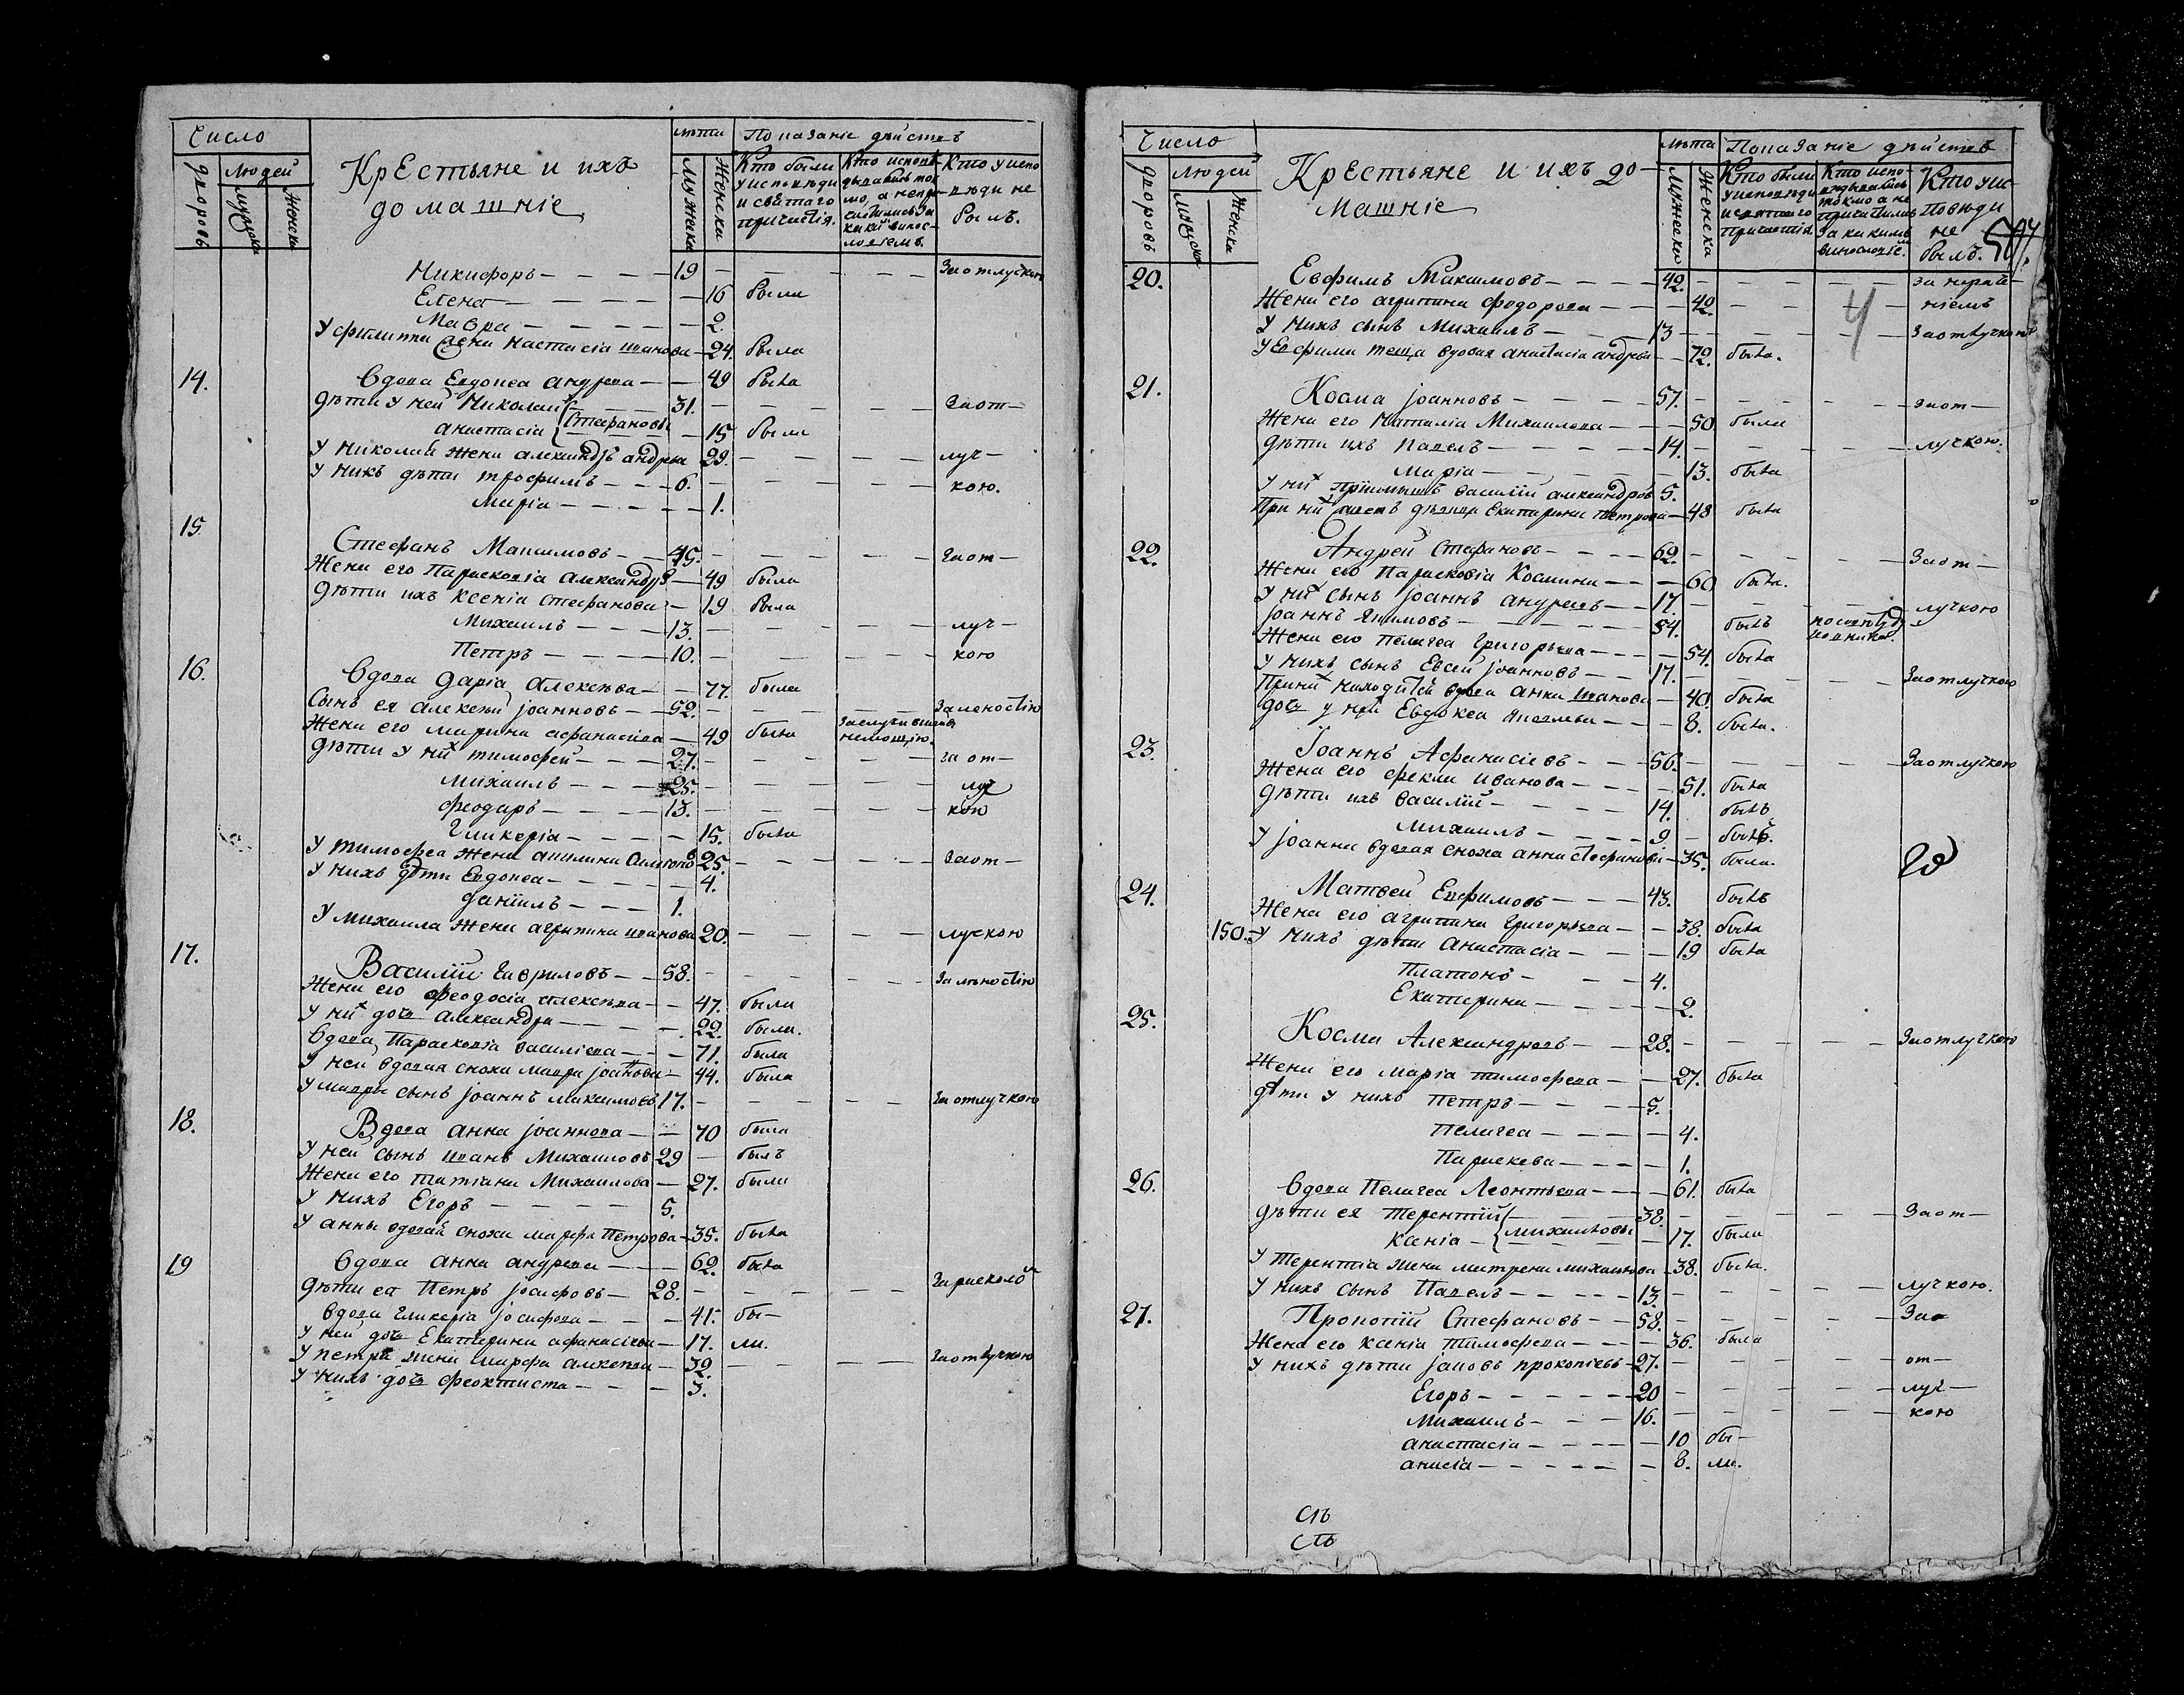 Число
лѣта
Показаніе дѣйствъ
дворовъ
Людей
мужска
женска
Крестьяне и ихъ
домашніе
Мужска
Женска
Кто были
у исповѣди
и святаго
причастія.
Кто исповѣ-
дывались ток
мо, а непри-
частились за
какимъ винос-
ловіемъ.
Кто у испо
вѣди не
былъ.
Никифоръ — 19 — Заотлучкою
Елена — 16 была
Мавра — 2.
У филиппа жена настасія иванова — 24. была
14. Вдова Евдокеа андреева — 49 была
дѣти у ней Николай 31. — Заот—
анастасія Стефановы 15 была
У Николая жена александра андрева 29. — луч—
У нихъ дѣти трофимъ — 6. — кою.
Марія — 1.
15. Стефанъ Максимовъ — 45. — Заот—
Жена его Парасковія александр — 49 была
дѣти ихъ ксенія стефанова — 19 была
Михаилъ — 13. — луч—
Петръ — 10. — кою
16. Вдова Дарія Алексѣева — 77. была
Сынъ ея алексѣй іоанновъ — 52. — Заленостію
Жена его марина афанасіева — 49 была немощію.
дѣти у нихъ тимофей — 27. — за от—
михаилъ — 25. — луч
феодаръ — 13. — кою
Гликерія — 15. была
У тимофеа жена акилина 25. — Заот—
У нихъ дѣти Евдокеа — 4.
даніилъ — 1.
У михаила жена агрипина иванова 20. — лучкою
17. Василій Гавриловъ — 58. — Залѣностію
Жена его феодосіа алексѣева — 47. была
У них дочь александра — 22. была.
Вдова Парасковіа василіева — 71. была
У ней вдовая сноха мавра іоаннова — 44. была
У мавры сынъ іоаннъ максимовъ 17. — Заотлучкою
18. Вдова анна іоаннова — 70 была
У ней сынъ иванъ Михаиловъ 29 — былъ
Жена его татіана Михаилова — 27. была
У нихъ Егоръ — 5.
У анны вдовая сноха марфа Петрова — 35. была
19 Вдова анна андреева — 62. была
дѣти ея Петръ іосифовъ — 28. — Зарасколо
Вдова гликеріа іосифова — 41. бы—
У ней дочь Екатерина афанасіева — 17. ли.
У петра жена марфа алексѣева — 32. — Заотлучкою
У нихъ дочь феоктиста — 3.
Число
лѣта
Показаніе дѣйствъ
дворовъ
Людей
мужска
женска
Крестьяне и ихъ до-
машніе
Мужеска
Женска
Кто были
у исповѣди
и святаго
причастія.
Кто испо-
вѣдывались
токмо а не
причастились
За какимъ
винословіе.
Кто у ис-
повѣди
не
былъ.
4
20. Евфимъ Максимовъ — 42. — за нераде-
Жена его агрипина федорова — 42. ніемъ
У нихъ сынъ Михаилъ — 13 — Заотлучкою
У Евфима теща вдовая анастасіа андрева — 72. была.
21. Косма іоанновъ — 57. — Заот—
Жена его наталіа Михаилова — 50 была
дѣти ихъ Павелъ — 14. — лучкою.
Маріа — 13. была
У них пріимышъ василій александровъ 5.
При них дѣвка Екатерина петрова — 48 была
22. Андрей Стефановъ — 62. — Заот—
Жена его Парасковіа Космина — 60 была.
У них сынъ іоаннъ андреевъ — 17. — лучкою
іоаннъ якимовъ — 54. былъ
Жена его пелагеа григорьева — 54. была
У нихъ сынъ Евсей іоанновъ — 17. — Заотлучкою
При них находится вдова анна иванова — 40. была
дочь у ней Евдокеа яковлева — 8. была.
23. Іоаннъ Афанасіевъ — 56. — Заотлучкою
Жена его фекла иванова — 51. была
дѣти ихъ василій — 14. былъ
михаилъ — 9 — былъ
У іоанна вдовая сноха анна стефанова — 35. была.
24. Матвей Евфимовъ — 43. былъ
Жена его агрипина григорьева — 38. была
150. У нихъ дѣти анастасіа — 19 была
Платонъ — 4.
Екатерина — 2.
25. Косма Александровъ — 28. — Заотлучкою
Жена его маріа тимофеева — 27. была
дѣти у нихъ Петръ — 5.
Пелагеа — 4.
Параскева — 1.
26. Вдова Пелагеа Леонтьева — 61. была
дѣти ея терентій 38. — Заот—
Ксаніа — Михаиловы 17. была
У терентіа жена матрена михаилова — 38. была.
У нихъ сынъ Павелъ — 13. — лучкою.
27. Прокопій Стефановъ — 58. — За
Жена его ксаніа тимофеева — 36. была
У нихъ дѣти іаковъ прокопіевъ — 27. — от—
Егоръ — 20 — луч—
михаилъ — 16. — кою
анастасіа — 10 бы—
анисіа — 8. ли.